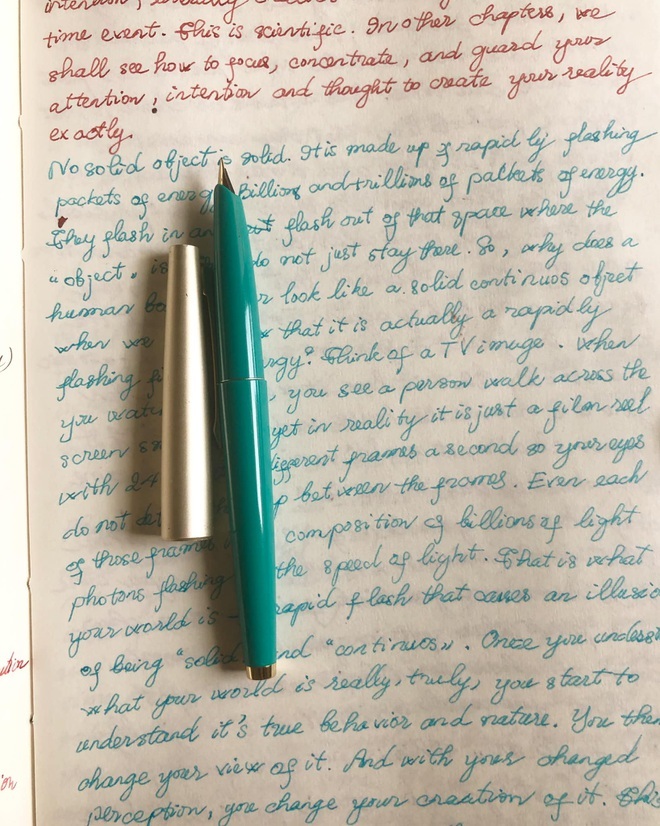 time event. This is scientific. In other chapters, we
shall see how to focus, concentrate, and guard your
attention, intention and thought to create your reality
exactly.
No solid object is solid. It is made up of rapidly flashing
packets of energy. Billions and trillions of packets of energy.
They flash in and out flash out of that space where the
"object" is do not just stay there. So, why does a
human look like a solid continuos object
when we that it is actually a rapidly
flashing Think of a TV image. When
you , you see a person walk across the
screen yet in reality it is just a film reel
with 24 different frames a second so your eyes
do not between the frames. Even each
of those frames composition of billions of light
photons flashing the speed of light. That is what
your world is - rapid flash that causes an illusio
of being "solid" and "continuos". Once you underst
what your world is really, truly, you start to
understand it's true behavior and nature. You then
change your view of it. And with your changed
perception, you change your creation of it. This